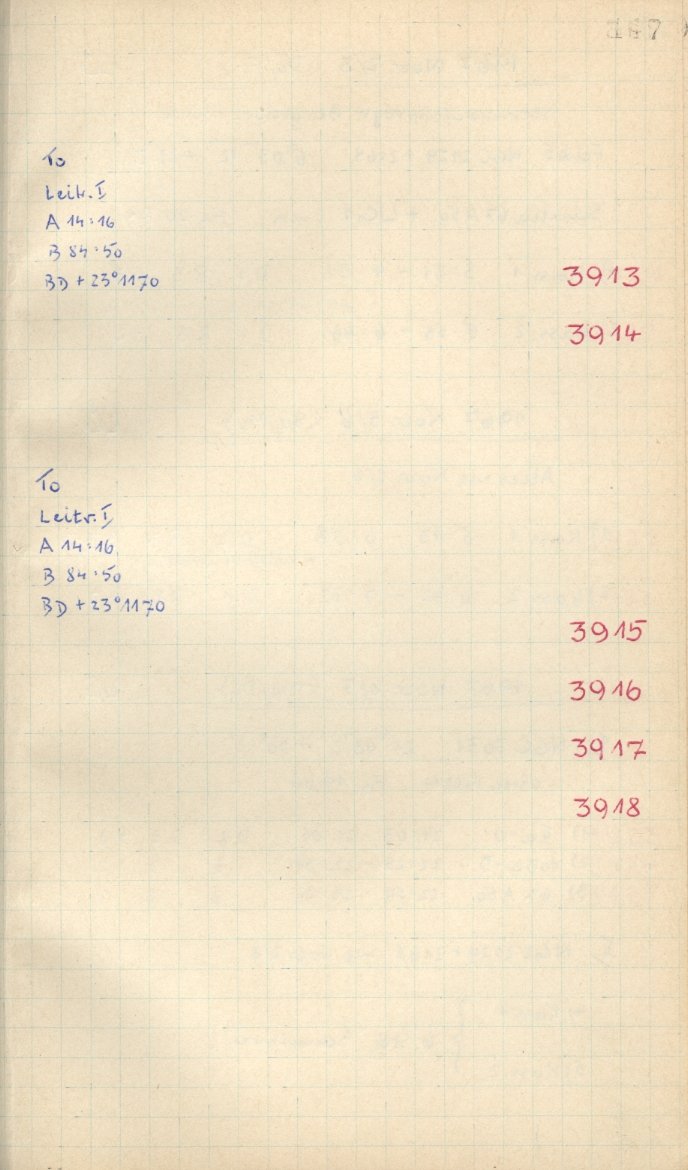 147
To
Leitr. I
A 14:16
B 84:50
BD + 23° 1170
3913
3914
To
Leitr. I
A 14:16
B 84:50
BD + 23° 1170
3915
3916
3917
3918